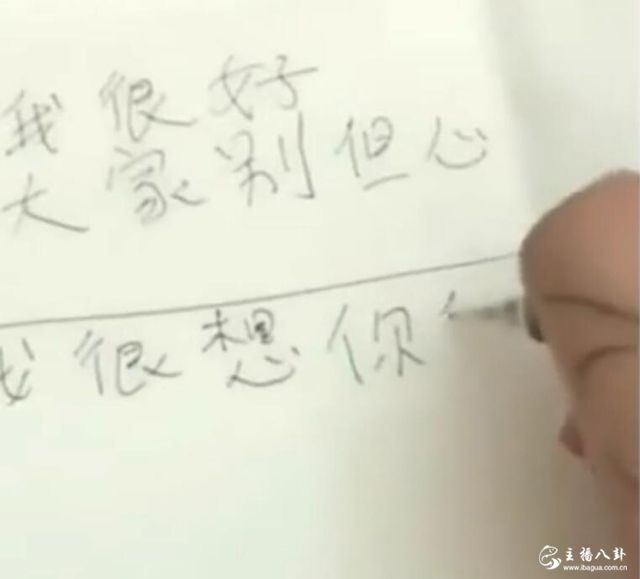 我很好
大家别但心
我很想你
主播八卦
www.ibagua.com.cn